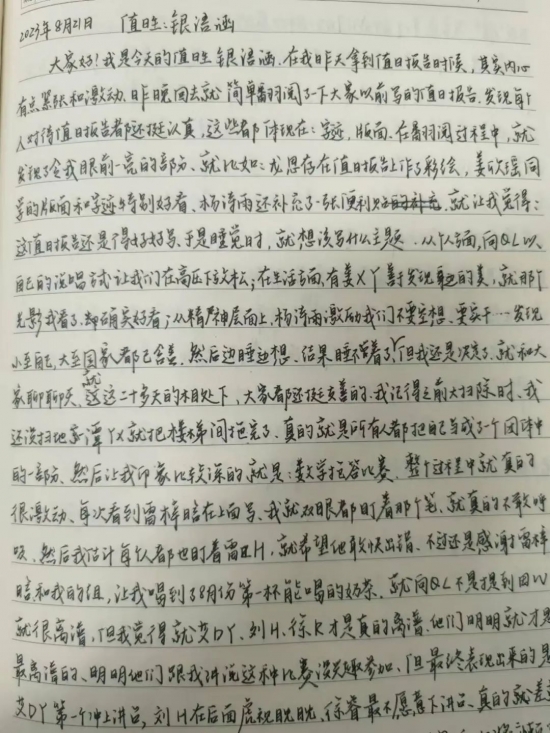 2023年8月21日 值日生:银语涵
大家好!我是今天的值日生银语涵,在我昨天拿到值日报告时候,其实内心
有点紧张和激动,昨晚回去就简单翻阅了一下大家以前写的值日报告,发现每个
人对待值日报告者都还挺认真,这些都体现在:字迹,版面,在翻阅过程中,就
发现了令我眼前一亮的部分,就比如:龙思存在值日报告上作了彩绘,姜欣瑶同
学的版面和字迹特别好看,杨诗雨还补充了一张便利贴,就让我觉得:
这值日报告还是得好好写,于是睡觉时,就想该写什么主题.从个人方面,向QL以
自己的说唱方式让我们在高压下放松;在生活方面,有姜XY善于发现身边的美,就那个
光影我看了,却确实好看;从精神层面上,杨诗雨激励我们不要空想,要实干…发现
小至自己,大至国家都已含盖,然后边睡边想,结果睡不着了,但我还是决定了,就和大
家聊聊天,就这二十多天的相处下,大家都还挺友善的,我记得之前大扫除时,我
还没扫地,谭YX就把楼梯间拖完了,真的就是所有人都把自己当成了一个团体中
的一部分,然后让我印象比较深的就是:数学抢答比赛,整个过程中就真的
很激动,每次看到雷梓晗在上面写,我就双眼都盯着那个笔,就真的不敢呼
吸,然后我估计每个人都也盯着雷ZH,就希望他敢快出错,不过还是感谢雷梓
晗和我的组,让我喝到了8月份第一杯能喝的奶茶,就向QL不是提到田W
就很离谱,但我觉得就艾DY、刘H、徐R才是真的离谱,他们明明就才是
最离谱的,明明他们跟我讲说这种比赛没兴趣参加,但最终表现出来的是
艾DY第一个冲上讲台,刘H在后面虎视眈眈,徐睿最不愿意下讲台,真的就差